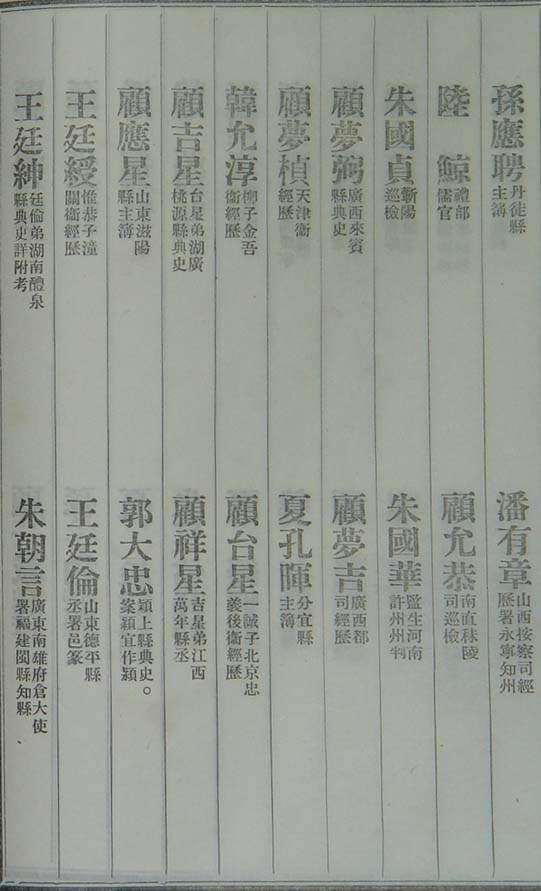 孫應聘 丹徒縣主簿
潘有章 山西按察司經歷署永寧知州
陸鯨 禮部儒官
顧允恭 南直秣陵司巡檢
朱國貞 蘄陽巡檢
朱國華 監生河南許州州判
顧夢弼 廣西來賓縣典史
顧夢吉 廣西都司經歷
顧夢楨 天津衞經歷
夏孔暉 分宜縣主簿
韓允淳 柳子金吾衞經歷
顧台星 一誠子北京忠義後衞經歷
顧吉星 台星弟湖廣桃源縣典史
顧祥星 吉星弟江西萬年縣丞
顧應星 山東滋陽縣主簿
郭大忠 潁上縣典史。案潁宜作潁
王廷綬 惟恭子潼關衞經歷
王廷倫 山東德平縣丞署邑篆
王廷紳 廷倫弟湖南醴泉縣典史詳附考
朱朝言 廣東南雄府倉大使署福建閩縣知縣